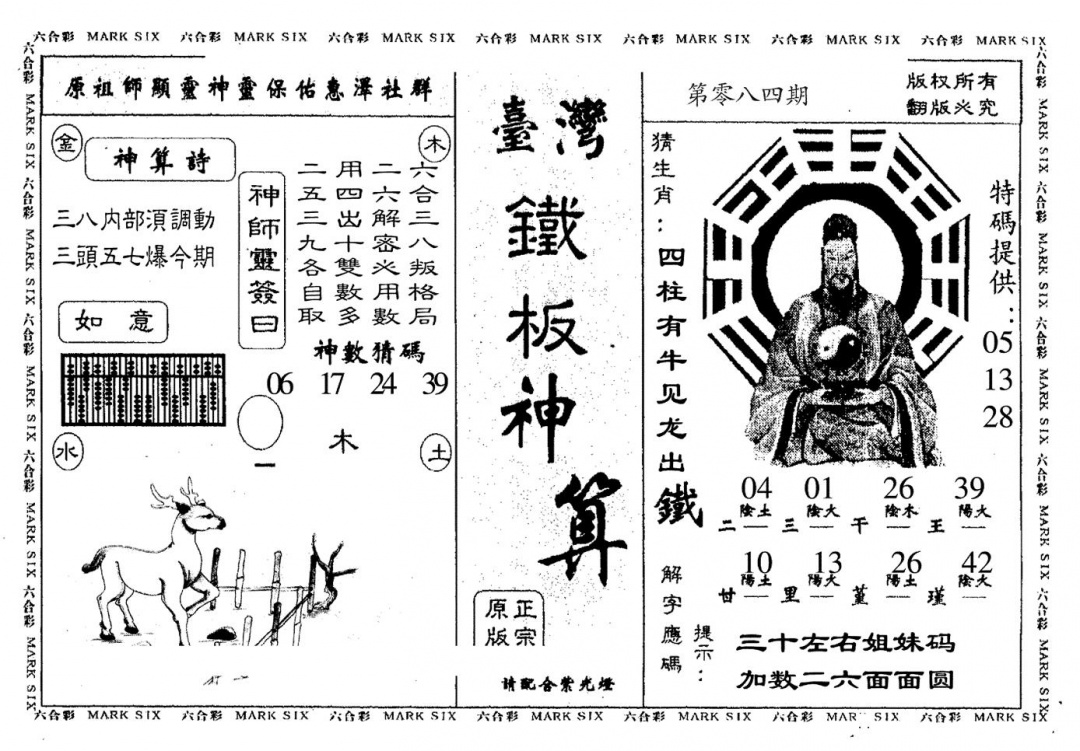 六合彩 MARK SIX 六合彩 MARK SIX 六合彩 MARK SIX 六合彩 MARK SIX 六合彩 MARK SIX 六合彩 MARK SIX 六合彩 MARK SIX
六合彩 MARK SIX 六合彩 MARK SIX 六合彩 MARK SIX 六合彩 MARK SIX 六合彩 MARK SIX
原祖師顯靈神靈保佑惠澤社群
金
木
神算詩
三八内部湏調動
三頭五七爆今期
如意
神師靈簽曰
六合三八叛格局
二六解密必用數
用四出十雙數多
二五三九各自取
神數猜碼
06 17 24 39
木
水
土
一
臺灣
鐵板神算
正宗
原版
請配合紫光燈
第零八四期
版权所有
翻版必究
猜生肖：四柱有牛见龙出鐵
特碼提供：
05
13
28
04 01 26 39
陰土 陰火 陰木 陽火
二 — 三 — 干 — 王 —
10 13 26 42
陽土 陽火 陽土 陰火
甘 — 里 — 堇 — 瑾 —
解字應碼
提示：
三十左右姐妹码
加数二六面面圆
六合彩 MARK SIX 六合彩 MARK SIX 六合彩 MARK SIX 六合彩 MARK SIX 六合彩 MARK SIX
六合彩 MARK SIX 六合彩 MARK SIX 六合彩 MARK SIX 六合彩 MARK SIX 六合彩 MARK SIX 六合彩 MARK SIX 六合彩 MARK SIX